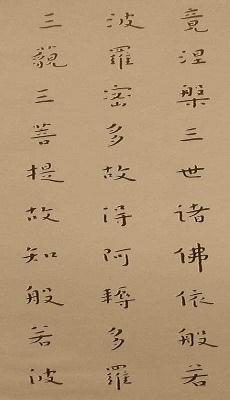 竟涅槃三世諸佛依般若
波羅蜜多故得阿耨多羅
三藐三菩提故知般若波